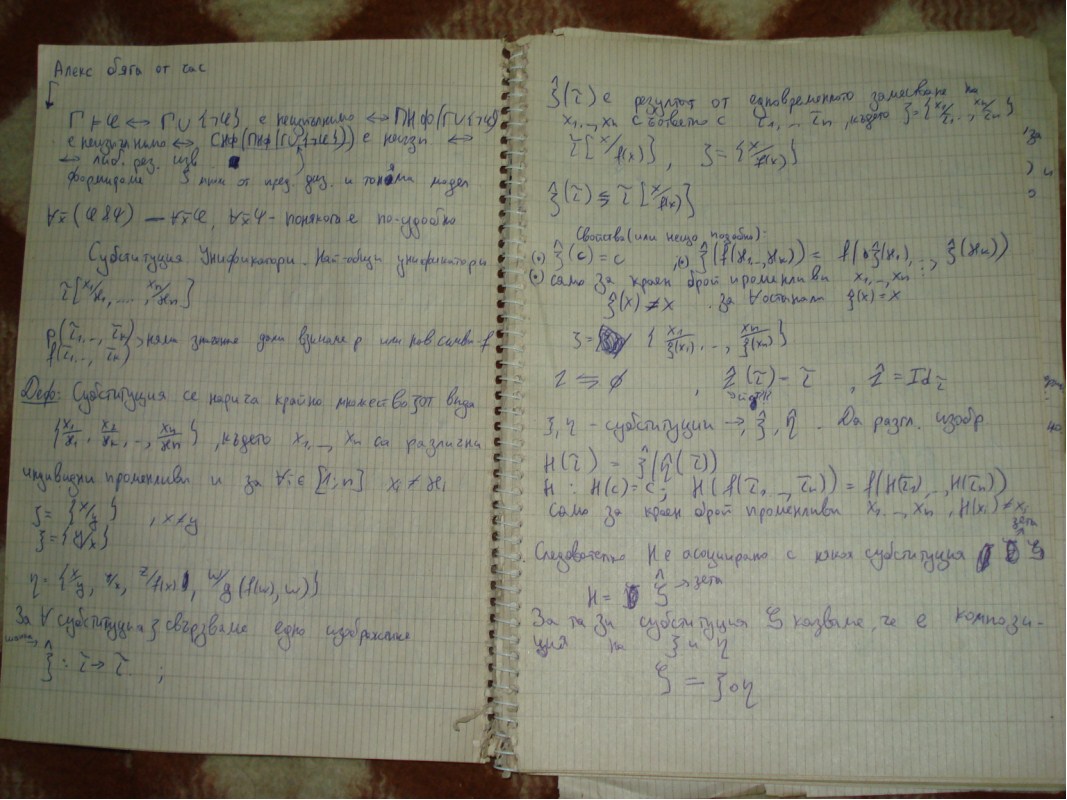 Алекс бяга от час
Γ ⊢ φ ↔ Γ∪{¬φ} е неизпълнимо ↔ ПНФ(Γ∪{¬φ})
е неизпълнимо ↔ СНФ(ПНФ(Γ∪{¬φ})) е неизп ↔
↔ рез. изв.
от пред. и модел
∀x̄(φ&ψ) – ∀x̄φ, ∀x̄ψ – понякога е по-удобно
Субституция Унификатори. Най-общи унификатори
τ[x₁/ϰ₁, ..., xₙ/ϰₙ]
p(τ₁, .., τₙ) няма значение дали взимаме p или нов символ f
f(τ₁, .., τₙ)
Деф: Субституция се нарича крайно множество от вида
{x₁/ϰ₁, x₂/ϰ₂, .., xₙ/ϰₙ}, където x₁, .., xₙ са различни
индивидни променливи и за ∀i∈[1;n] xᵢ ≠ ϰᵢ
ξ = {x/y} , x≠y
ξ = {y/x}
η = {x/y, z/f(x), w/g(f(w), w)}
За ∀ субституция ξ свързваме едно изображение
ξ̂ : τ → τ ;
ξ̂(τ) е резултат от едновременното заместване на
x₁, .., xₙ съответно с τ₁, .. τₙ, където ξ = {x₁/, .., xₙ/τₙ}
τ[x/f(x)] , ξ = {x/f(x)}
ξ̂(τ) ⇆ τ[x/f(x)]
Свойства (или нещо подобно):
(•) ξ̂(c) = c ; (•) ξ̂(f(ϰ₁, .., ϰₙ)) = f(ξ̂(ϰ₁), .., ξ̂(ϰₙ))
(•) само за краен брой променливи x₁, .., xₙ
ξ̂(x) ≠ x . за ∀останали ξ(x) = x
ξ = {x₁/ξ(x₁), .., xₙ/ξ(xₙ)}
ι ⇋ ∅ , ι̂(τ) – τ , ι̂ = Id τ
ξ, η – субституции →, ξ̂, η̂ . Да разгл. изобр.
H(τ) = ξ̂(η̂(τ))
H : H(c) = c; H(f(τ₁, .., τₙ)) = f(H(τ₁), .., H(τₙ))
само за краен брой променливи x₁, .., xₙ, H(xᵢ) ≠ xᵢ
зета
Следователно H е асоциирано с някоя субституция ζ
H = ζ̂ → зета
За тази субституция ζ казваме, че е компози-
ция на ξ и η
ζ = ξ∘η